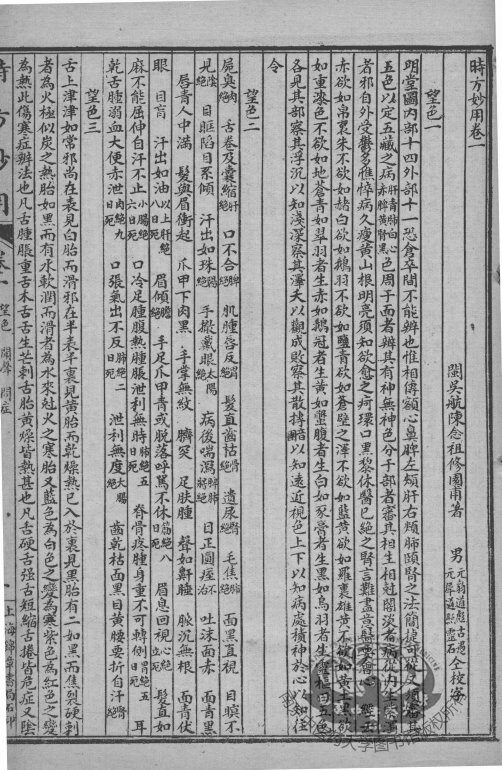 時方妙用卷一
閩吳航陳念祖修園甫著 男 元豹道彪古愚 元犀道照靈石 仝校字
望色一
明堂圖內部十四外部十一恐倉卒間不能辨也惟相傳額心鼻脾左頰肝右頰肺頤腎之法簡捷可從反須審其
五色以定五藏之病肝青肺白心赤脾黃腎黑色周于面者辨其有神無神色分于部者審其相生相尅闇淡者病從內生紫濁
者邪自外受鬱多憔悴病久瘦黃山根明亮須知欲愈之疴環口黑黎休醫已絕之腎言難盡意醫要會心 經云
赤欲如帛裹朱不欲如赭白欲如鵝羽不欲如鹽青欲如蒼璧之澤不欲如藍黃欲如羅裹雄黃不欲如黃土黑欲
如重漆色不欲如地蒼青如翠羽者生赤如鷄冠者生黃如蟹腹者生白如豕膏者生黑如烏羽者生靈樞曰五色
各見其部察其浮沉以知淺深察其澤夭以觀成敗察其散摶以知遠近視色上下以知病處積神於心以知往
今
望色二
屍臭肉絕 舌卷及囊縮肝絕 口不合脾絕 肌腫唇反胃絕 髮直齒枯骨絕 遺尿腎絕 毛焦肺絕 面黑直視 目瞑不
見陰絕 目眶陷目系傾 汗出如珠陽絕 手撒戴眼太陽絕 病後喘瀉脾肺將絕 目正圓痙不治 吐沫面赤 面青黑
唇青人中滿 髮與眉衝起 爪甲下肉黑 手掌無紋 臍突 足趺腫 聲如鼾睡 脉沉無根 面青伏
眼 目盲 汗出如油以上肝絕八日死 眉傾膽絕 手足爪甲青或脫落呼罵不休筋絕八日死 眉息回視心絕立死 髮直如
麻不能屈伸自汗不止小腸絕六日死 口冷足腫腹熱臚脹泄利無時脾絕五日死 脊骨疼腫身重不可轉側胃絕五日死 耳
乾舌腫溺血大便赤泄肉絕九日死 口張氣出不反肺絕二日死 泄利無度大腸絕 齒乾枯面黑目黃腰要折自汗腎絕
望色三
舌上津津如常邪尚在表見白胎而滑邪在半表半裏見黃胎而乾燥熱已入於裏見黑胎有二如黑而焦裂硬刺
者為火極似炭之熱胎如黑而有水軟潤而滑者為水來尅火之寒胎又藍色為白色之變為寒紫色為紅色之變
為熱此傷寒症辨法也凡舌腫脹重舌木舌舌生芒刺舌胎黃燥皆熱甚也凡舌硬舌强舌短縮舌捲皆危症又陰
時方妙用 卷一 望色 聞聲 問症 一 上海錦章書局石印